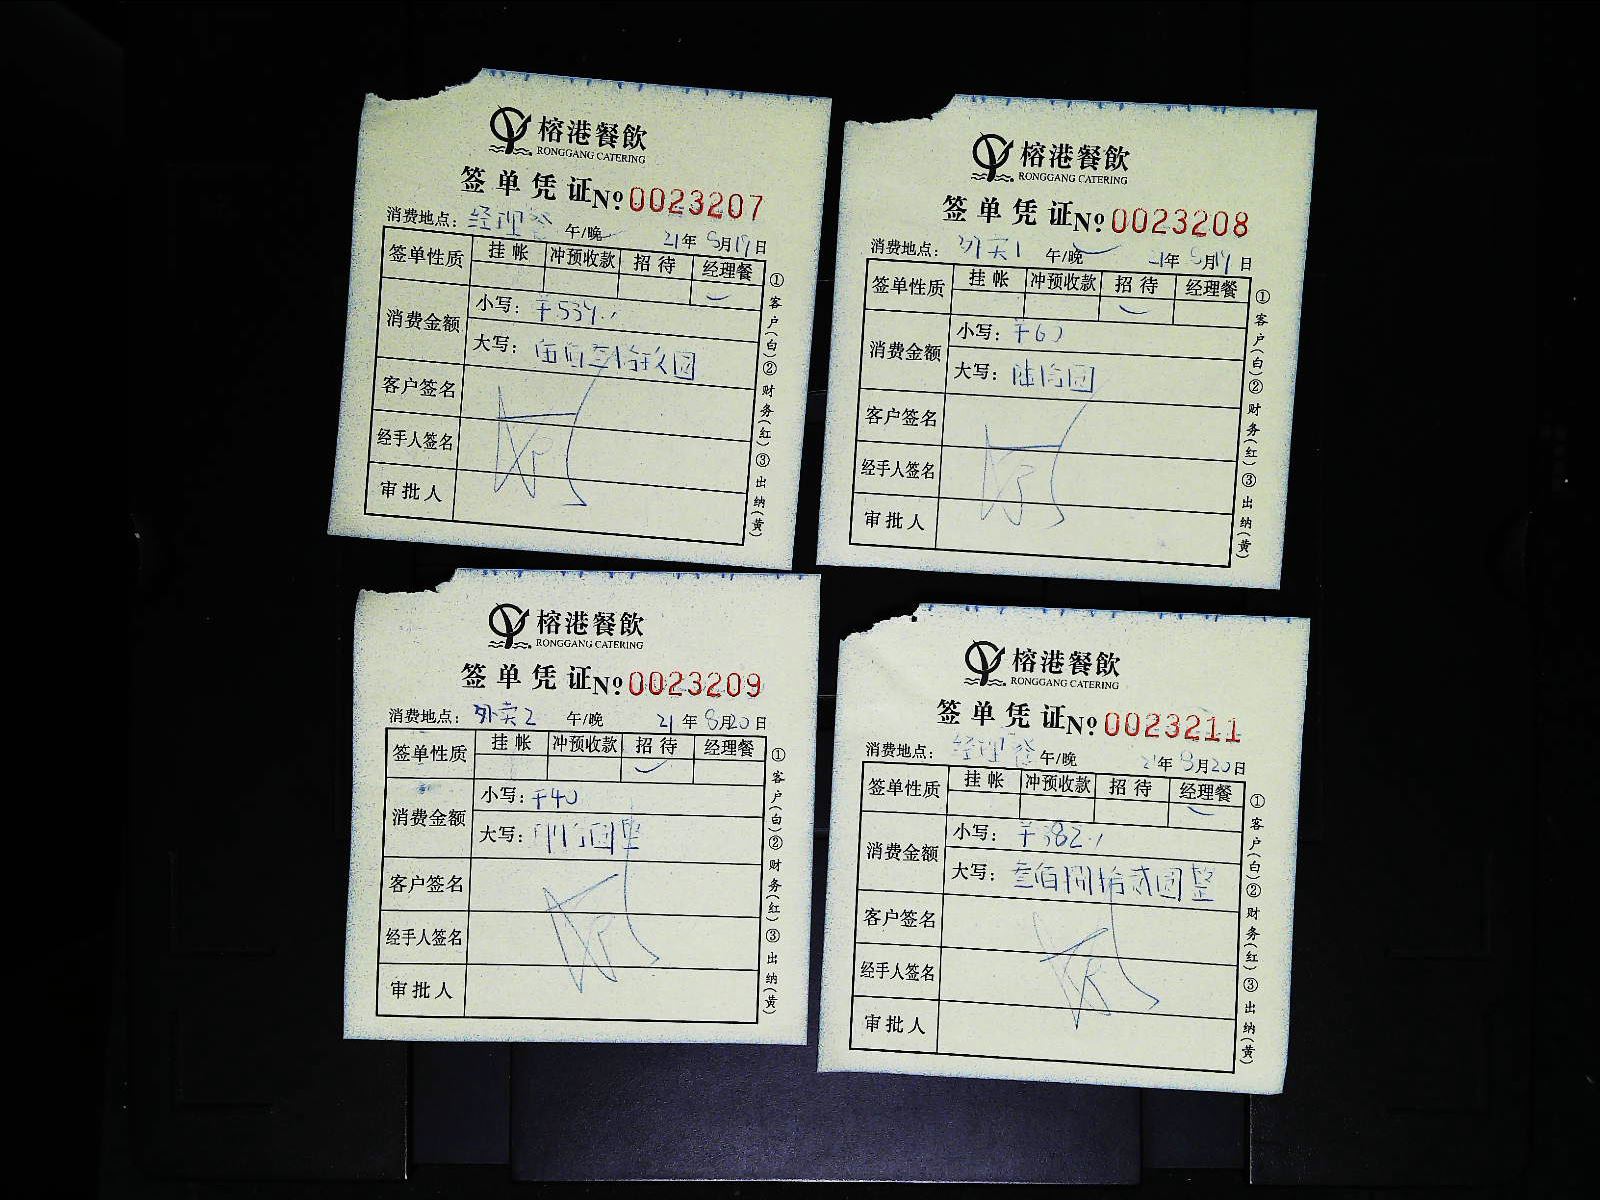 榕港餐飲
RONGGANG CATERING
签单凭证 № 0023207
消费地点: 经理餐 午/晚 21年8月19日
签单性质 挂帐 冲预收款 招待 经理餐
消费金额 小写: ¥539.
大写: 伍佰叁拾玖圆
客户签名
经手人签名
审批人
①客户(白)②财务(红)③出纳(黄)
榕港餐飲
RONGGANG CATERING
签单凭证 № 0023208
消费地点: 外卖1 午/晚 21年8月19日
签单性质 挂帐 冲预收款 招待 经理餐
消费金额 小写: ¥60
大写: 陆拾圆
客户签名
经手人签名
审批人
①客户(白)②财务(红)③出纳(黄)
榕港餐飲
RONGGANG CATERING
签单凭证 № 0023209
消费地点: 外卖2 午/晚 21年8月20日
签单性质 挂帐 冲预收款 招待 经理餐
消费金额 小写: ¥40
大写: 肆拾圆整
客户签名
经手人签名
审批人
①客户(白)②财务(红)③出纳(黄)
榕港餐飲
RONGGANG CATERING
签单凭证 № 0023211
消费地点: 经理餐 午/晚 21年8月20日
签单性质 挂帐 冲预收款 招待 经理餐
消费金额 小写: ¥382.
大写: 叁佰捌拾贰圆整
客户签名
经手人签名
审批人
①客户(白)②财务(红)③出纳(黄)